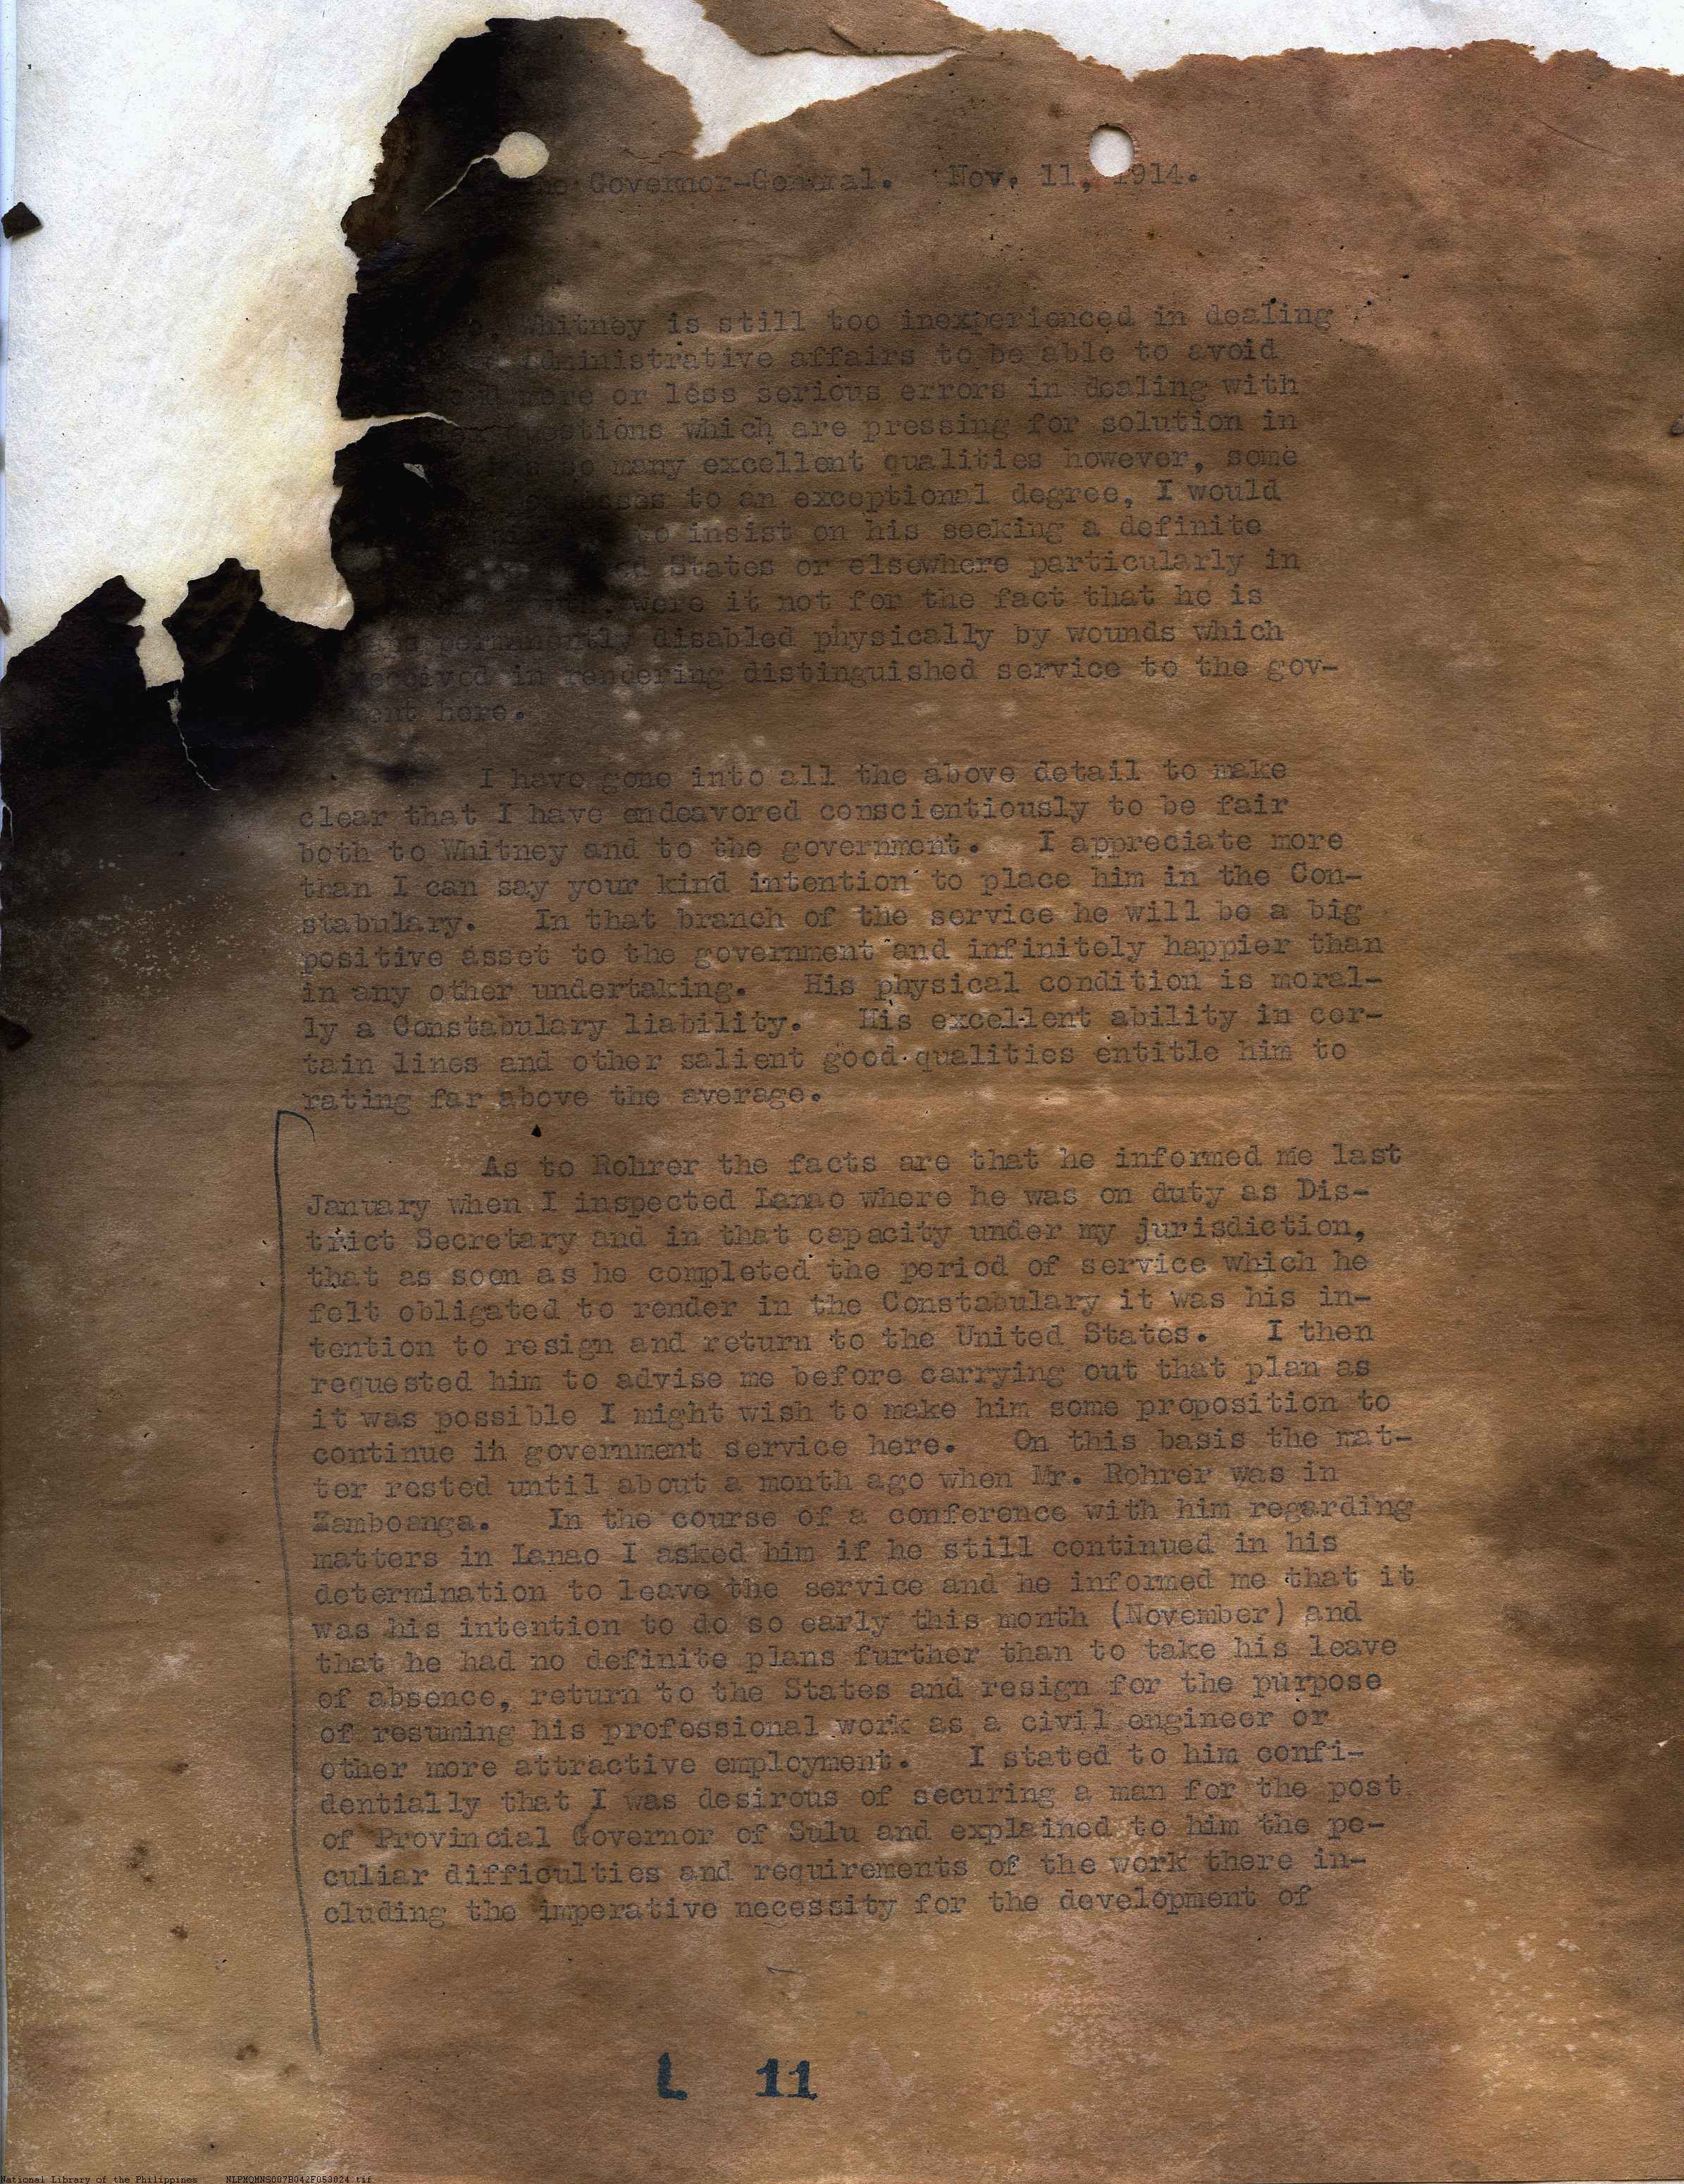 Governor-General. Nov. 11, 1914.
Whitney is still too inexperienced in dealing
administrative affairs to be able to avoid
more or less serious errors in dealing with
questions which are pressing for solution in
many excellent qualities however, some
to an exceptional degree, I would
to insist on his seeking a definite
States or elsewhere particularly in
were it not for the fact that he is
permanently disabled physically by wounds which
received in rendering distinguished service to the gov-
ent here.
I have gone into all the above detail to make
clear that I have endeavored conscientiously to be fair
both to Whitney and to the government. I appreciate more
than I can say your kind intention to place him in the Con-
stabulary. In that branch of the service he will be a big
positive asset to the government and infinitely happier than
in any other undertaking. His physical condition is moral-
ly a Constabulary liability. His excellent ability in cer-
tain lines and other salient good qualities entitle him to
rating far above the average.
As to Rohrer the facts are that he informed me last
January when I inspected Lanao where he was on duty as Dis-
trict Secretary and in that capacity under my jurisdiction,
that as soon as he completed the period of service which he
felt obligated to render in the Constabulary it was his in-
tention to resign and return to the United States. I then
requested him to advise me before carrying out that plan as
it was possible I might wish to make him some proposition to
continue in government service here. On this basis the mat-
ter rested until about a month ago when Mr. Rohrer was in
Zamboanga. In the course of a conference with him regarding
matters in Lanao I asked him if he still continued in his
determination to leave the service and he informed me that it
was his intention to do so early this month (November) and
that he had no definite plans further than to take his leave
of absence, return to the States and resign for the purpose
of resuming his professional work as a civil engineer or
other more attractive employment. I stated to him confi-
dentially that I was desirous of securing a man for the post
of Provincial Governor of Sulu and explained to him the pe-
culiar difficulties and requirements of the work there in-
cluding the imperative necessity for the development of
L 11
National Library of the Philippines NLPMQMNS007B042F053024.tif